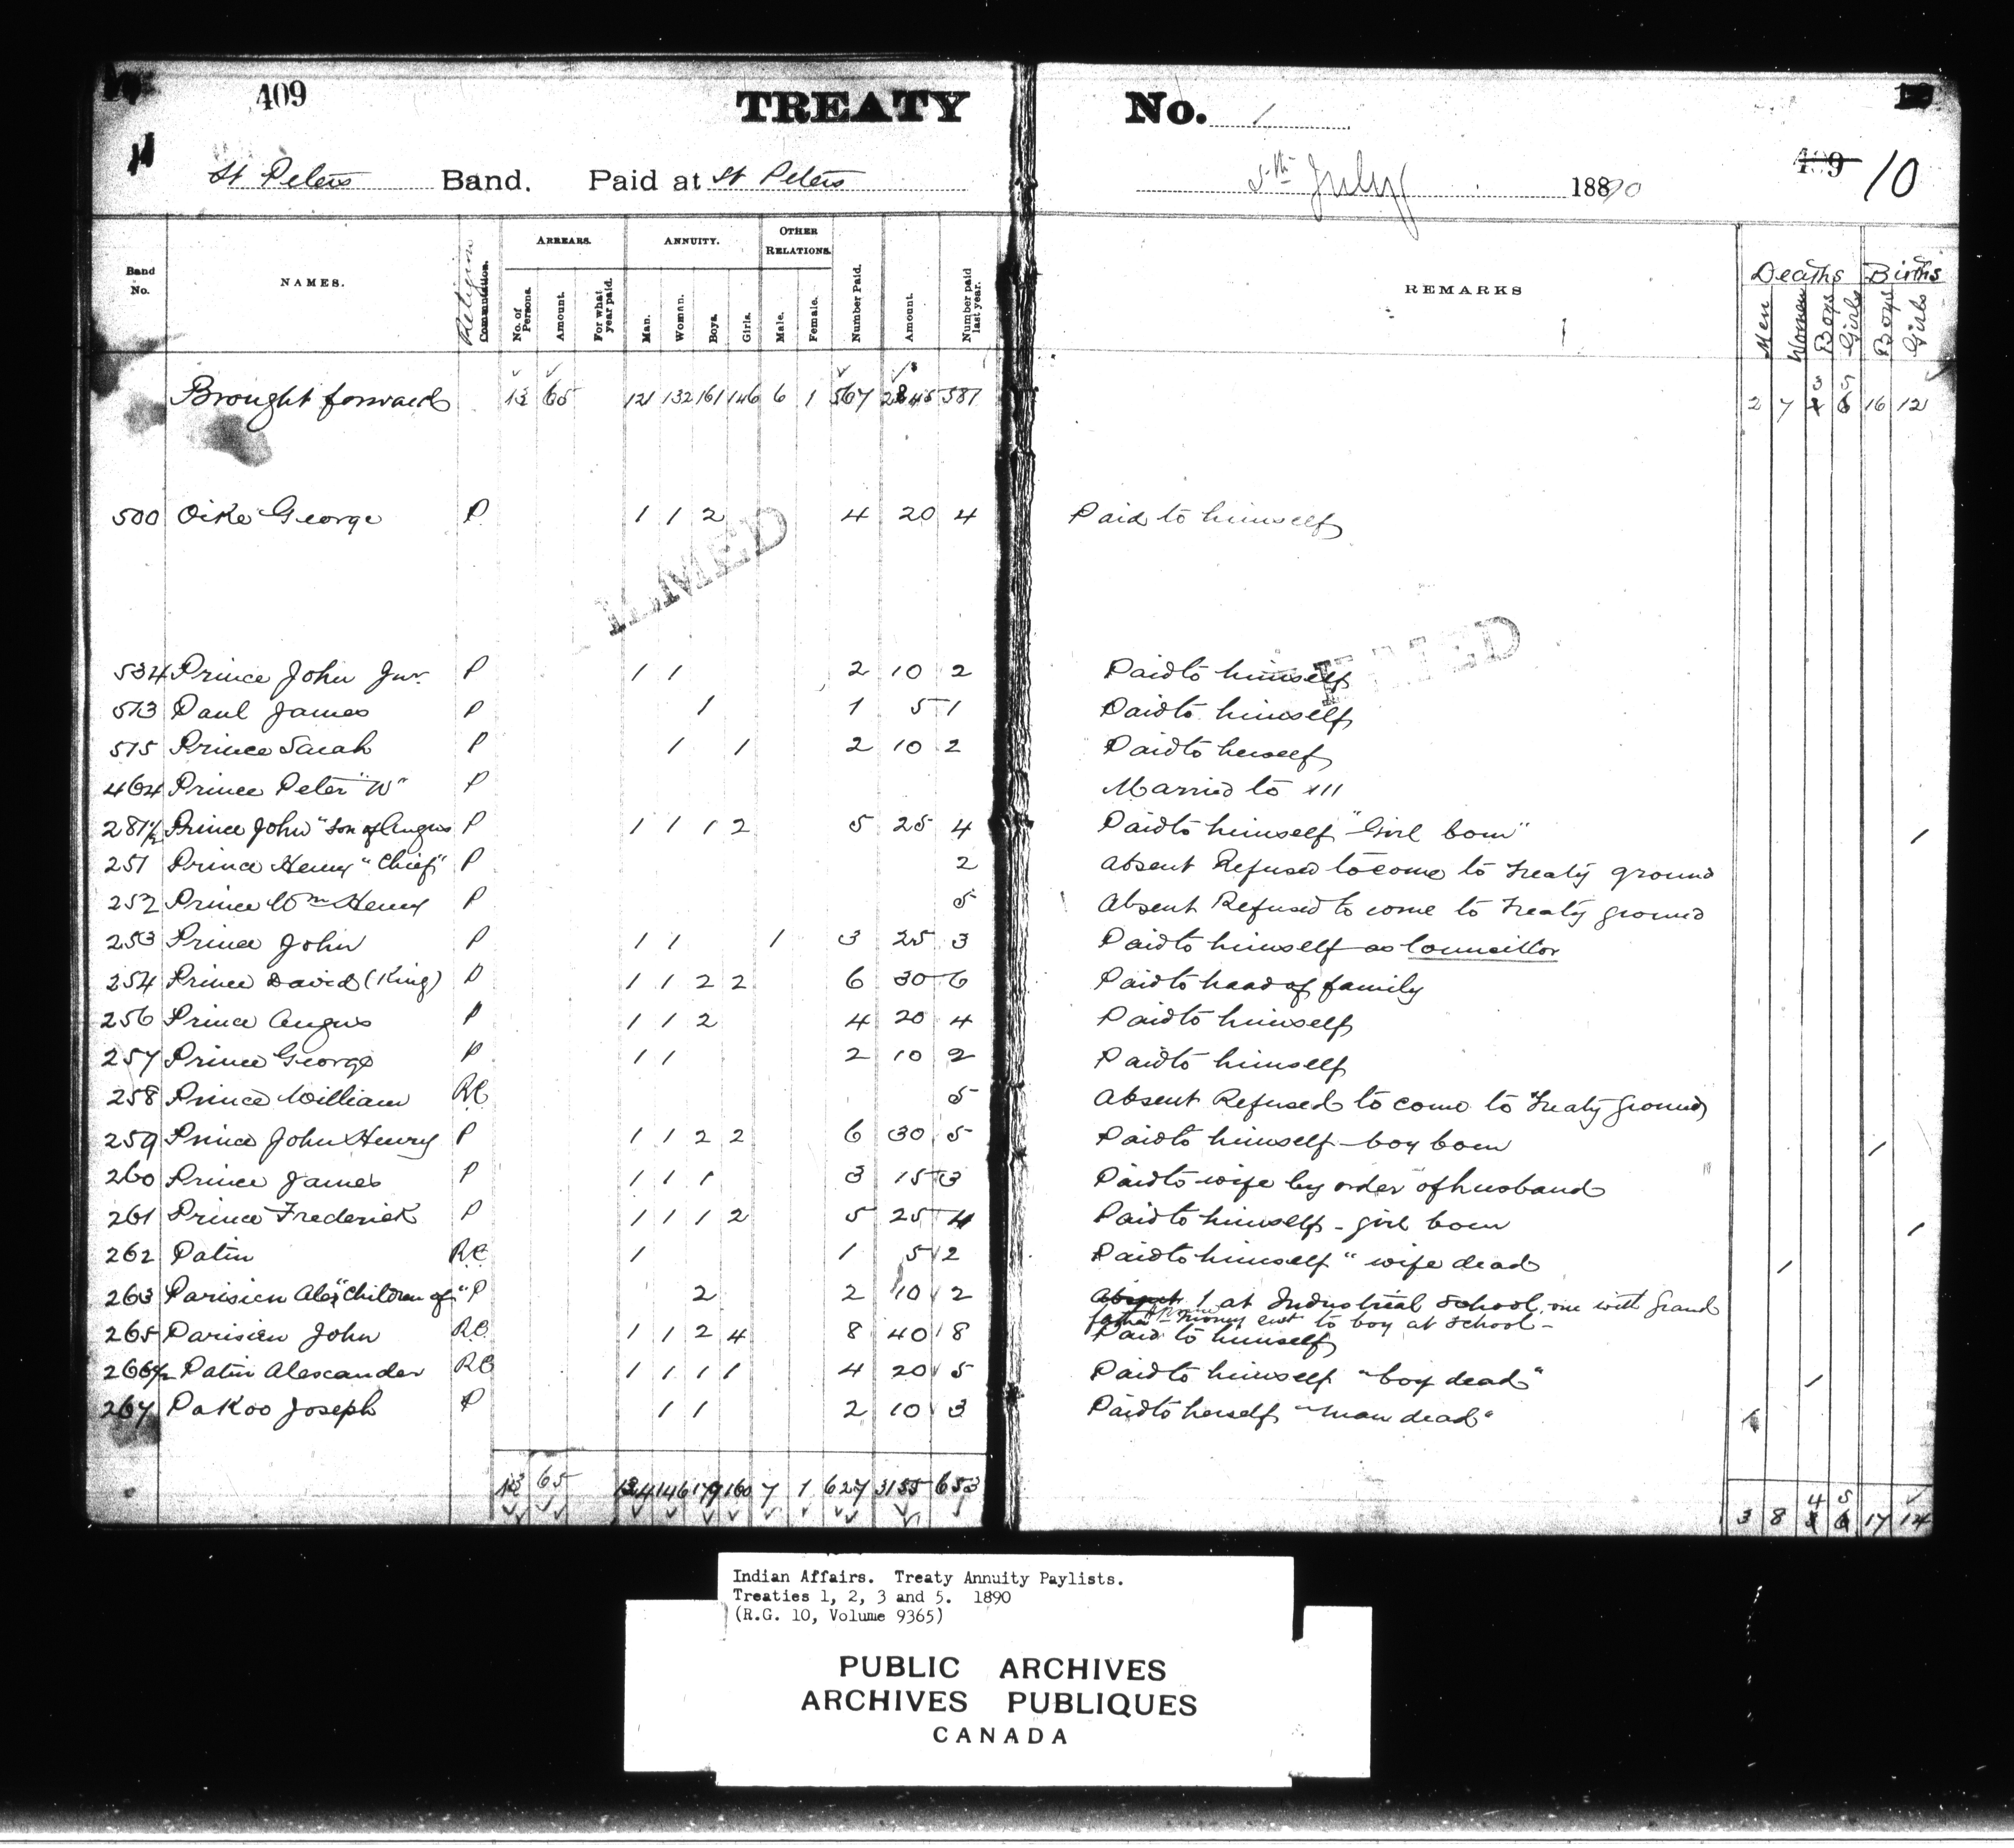 409 TREATY No. 1
St Peters Band. Paid at St Peters 5th July 1890 409 10
Band No. NAMES. Religion Commutation. ARREARS. No. of Persons. Amount. For what year paid. ANNUITY. Man. Woman. Boys. Girls. OTHER RELATIONS. Male. Female. Number Paid. Amount. Number paid last year. REMARKS Deaths Men Women Boys Girls Births Boys Girls
Brought forward 13 65 121 132 161 146 6 1 567 2845 587 2 7 3 5 16 12
500 Oike George P 1 1 2 4 20 4 Paid to himself
534 Prince John Jnr. P 1 1 2 10 2 Paid to himself
513 Paul James P 1 1 5 1 Paid to himself
515 Prince Sarah P 1 1 2 10 2 Paid to herself
464 Prince Peter "W" P Married to 111
281½ Prince John "Son of Angus P 1 1 1 2 5 25 4 Paid to himself "Girl born" 1
251 Prince Henry "Chief" P 2 Absent Refused to come to Treaty ground
252 Prince Wm Henry P 5 Absent Refused to come to Treaty ground
253 Prince John P 1 1 1 3 25 3 Paid to himself as Councillor
254 Prince David (King) P 1 1 2 2 6 30 6 Paid to head of family
256 Prince Angus P 1 1 2 4 20 4 Paid to himself
257 Prince George P 1 1 2 10 2 Paid to himself
258 Prince William RC 5 Absent Refused to come to Treaty ground
259 Prince John Henry P 1 1 2 2 6 30 5 Paid to himself - boy born 1
260 Prince James P 1 1 1 3 15 3 Paid to wife by order of husband
261 Prince Frederick P 1 1 1 2 5 25 4 Paid to himself - girl born 1
262 Patin RC 1 1 5 2 Paid to himself " wife dead 1
263 Parisien Alex "Children of" P 2 2 10 2 Absent 1 at Industrial School, one with Grand
father money sent to boy at school -
265 Parisien John RC 1 1 2 4 8 40 8 Paid to himself
266½ Patin Alexander RC 1 1 1 1 4 20 5 Paid to himself "boy dead" 1
267 PaKoo Joseph P 1 1 2 10 3 Paid to herself "man dead" 1
13 65 134 146 179 160 7 1 627 3155 653 3 8 4 5 17 14
FILMED
Indian Affairs. Treaty Annuity Paylists.
Treaties 1, 2, 3 and 5. 1890
(R.G. 10, Volume 9365)
PUBLIC ARCHIVES
ARCHIVES PUBLIQUES
CANADA